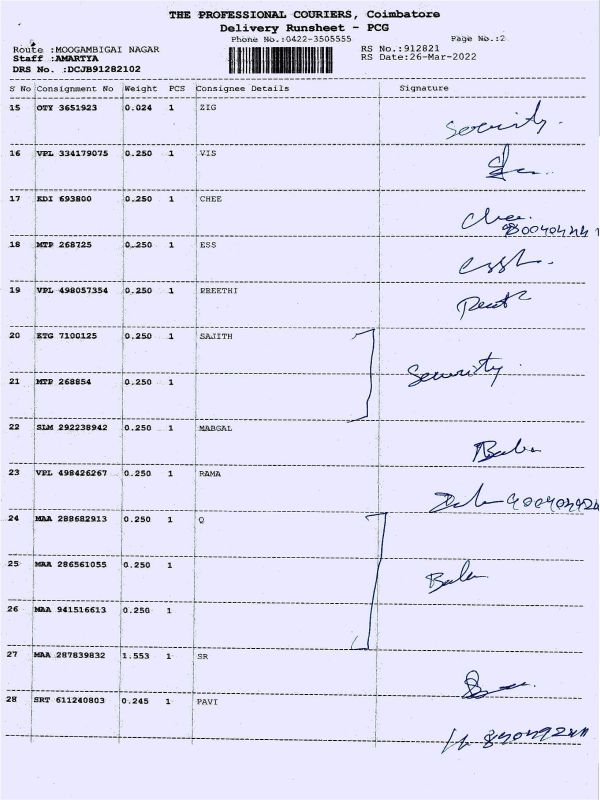 THE PROFESSIONAL COURIERS, Coimbatore
Delivery Runsheet - PCG
Phone No.:0422-3505555 Page No.:2
Route :MOOGAMBIGAI NAGAR RS No.:912821
Staff :AMARTYA RS Date:26-Mar-2022
DRS No. :DCJB91282102
S No Consignment No Weight PCS Consignee Details Signature
15 OTY 3651923 0.024 1 ZIG
Security.
16 VPL 334179075 0.250 1 VIS
17 KDI 693800 0.250 1 CHEE
Chee.
18 MTP 268725 0.250 1 ESS
19 VPL 498057354 0.250 1 PREETHI
20 KTG 7100125 0.250 1 SAJITH
Security.
21 MTP 268854 0.250 1
22 SLM 292238942 0.250 1 MABGAL
23 VPL 498426267 0.250 1 RAMA
24 MAA 288682913 0.250 1 Q
25 MAA 286561055 0.250 1
26 MAA 941516613 0.250 1
27 MAA 287839832 1.553 1 SR
28 SRT 611240803 0.245 1 PAVI